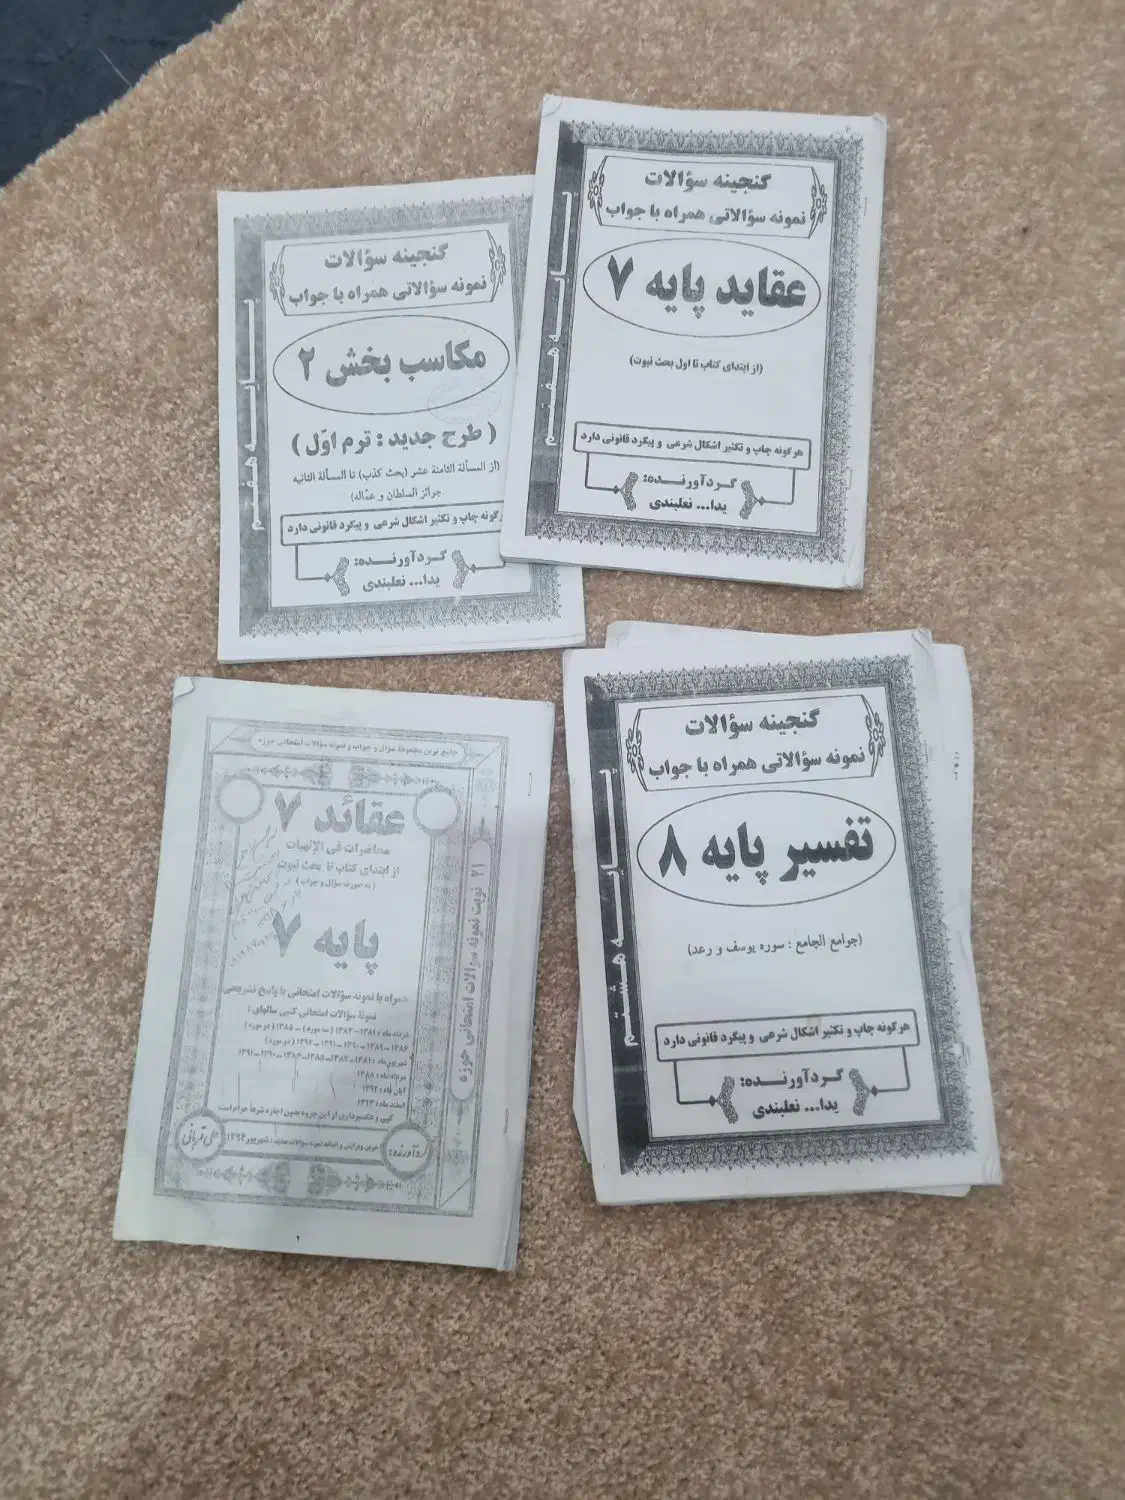 گنجینه سؤالات
نمونه سؤالاتی همراه با جواب
عقاید پایه ۷
(از ابتدای کتاب تا اول بحث نبوت)
هرگونه چاپ و تکثیر اشکال شرعی و پیگرد قانونی دارد
گردآورنده:
یدا... نعلبندی
پایه هفتم
گنجینه سؤالات
نمونه سؤالاتی همراه با جواب
مکاسب بخش ۲
(طرح جدید : ترم اوّل)
(از المسألة الثامنة عشر (بحث کذب) تا المسألة الثانیه
جوائز السلطان و عمّاله)
هرگونه چاپ و تکثیر اشکال شرعی و پیگرد قانونی دارد
گردآورنده:
یدا... نعلبندی
پایه هفتم
گنجینه سؤالات
نمونه سؤالاتی همراه با جواب
تفسیر پایه ۸
(جوامع الجامع : سوره یوسف و رعد)
هرگونه چاپ و تکثیر اشکال شرعی و پیگرد قانونی دارد
گردآورنده:
یدا... نعلبندی
پایه هشتم
جامع ترین مجموعه سؤال و جواب و نمونه سؤالات امتحانی حوزه
عقائد ۷
محاضرات فی الإلهیات
از ابتدای کتاب تا بحث نبوت
(به صورت سؤال و جواب)
پایه ۷
همراه با نمونه سؤالات امتحانی با پاسخ تشریحی
نمونهٔ سؤالات امتحانی کتبی سالهای :
کپی و عکسبرداری از این جزوه بدون اجازه شرعاً حرام است
گردآورنده:
علی قربانی
۲۱ نوبت نمونه سوالات امتحانی حوزه